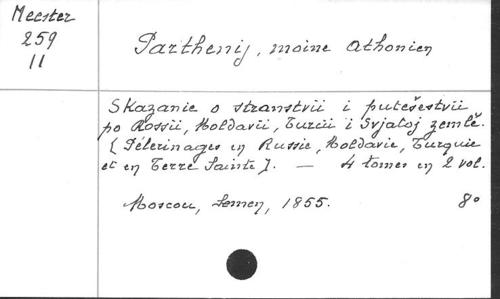 Meester
259
11
Parthenij, moine athonien
Skazanie o stranstvii i putešestvii
po Rossii, Moldavii, Turcii i Svjatoj zemlě.
[Pélerinages en Russie, Moldavie, Turquie
et en Terre Sainte]. — 4 tomes en 2 vol.
Moscou, Semen, 1855. 8°